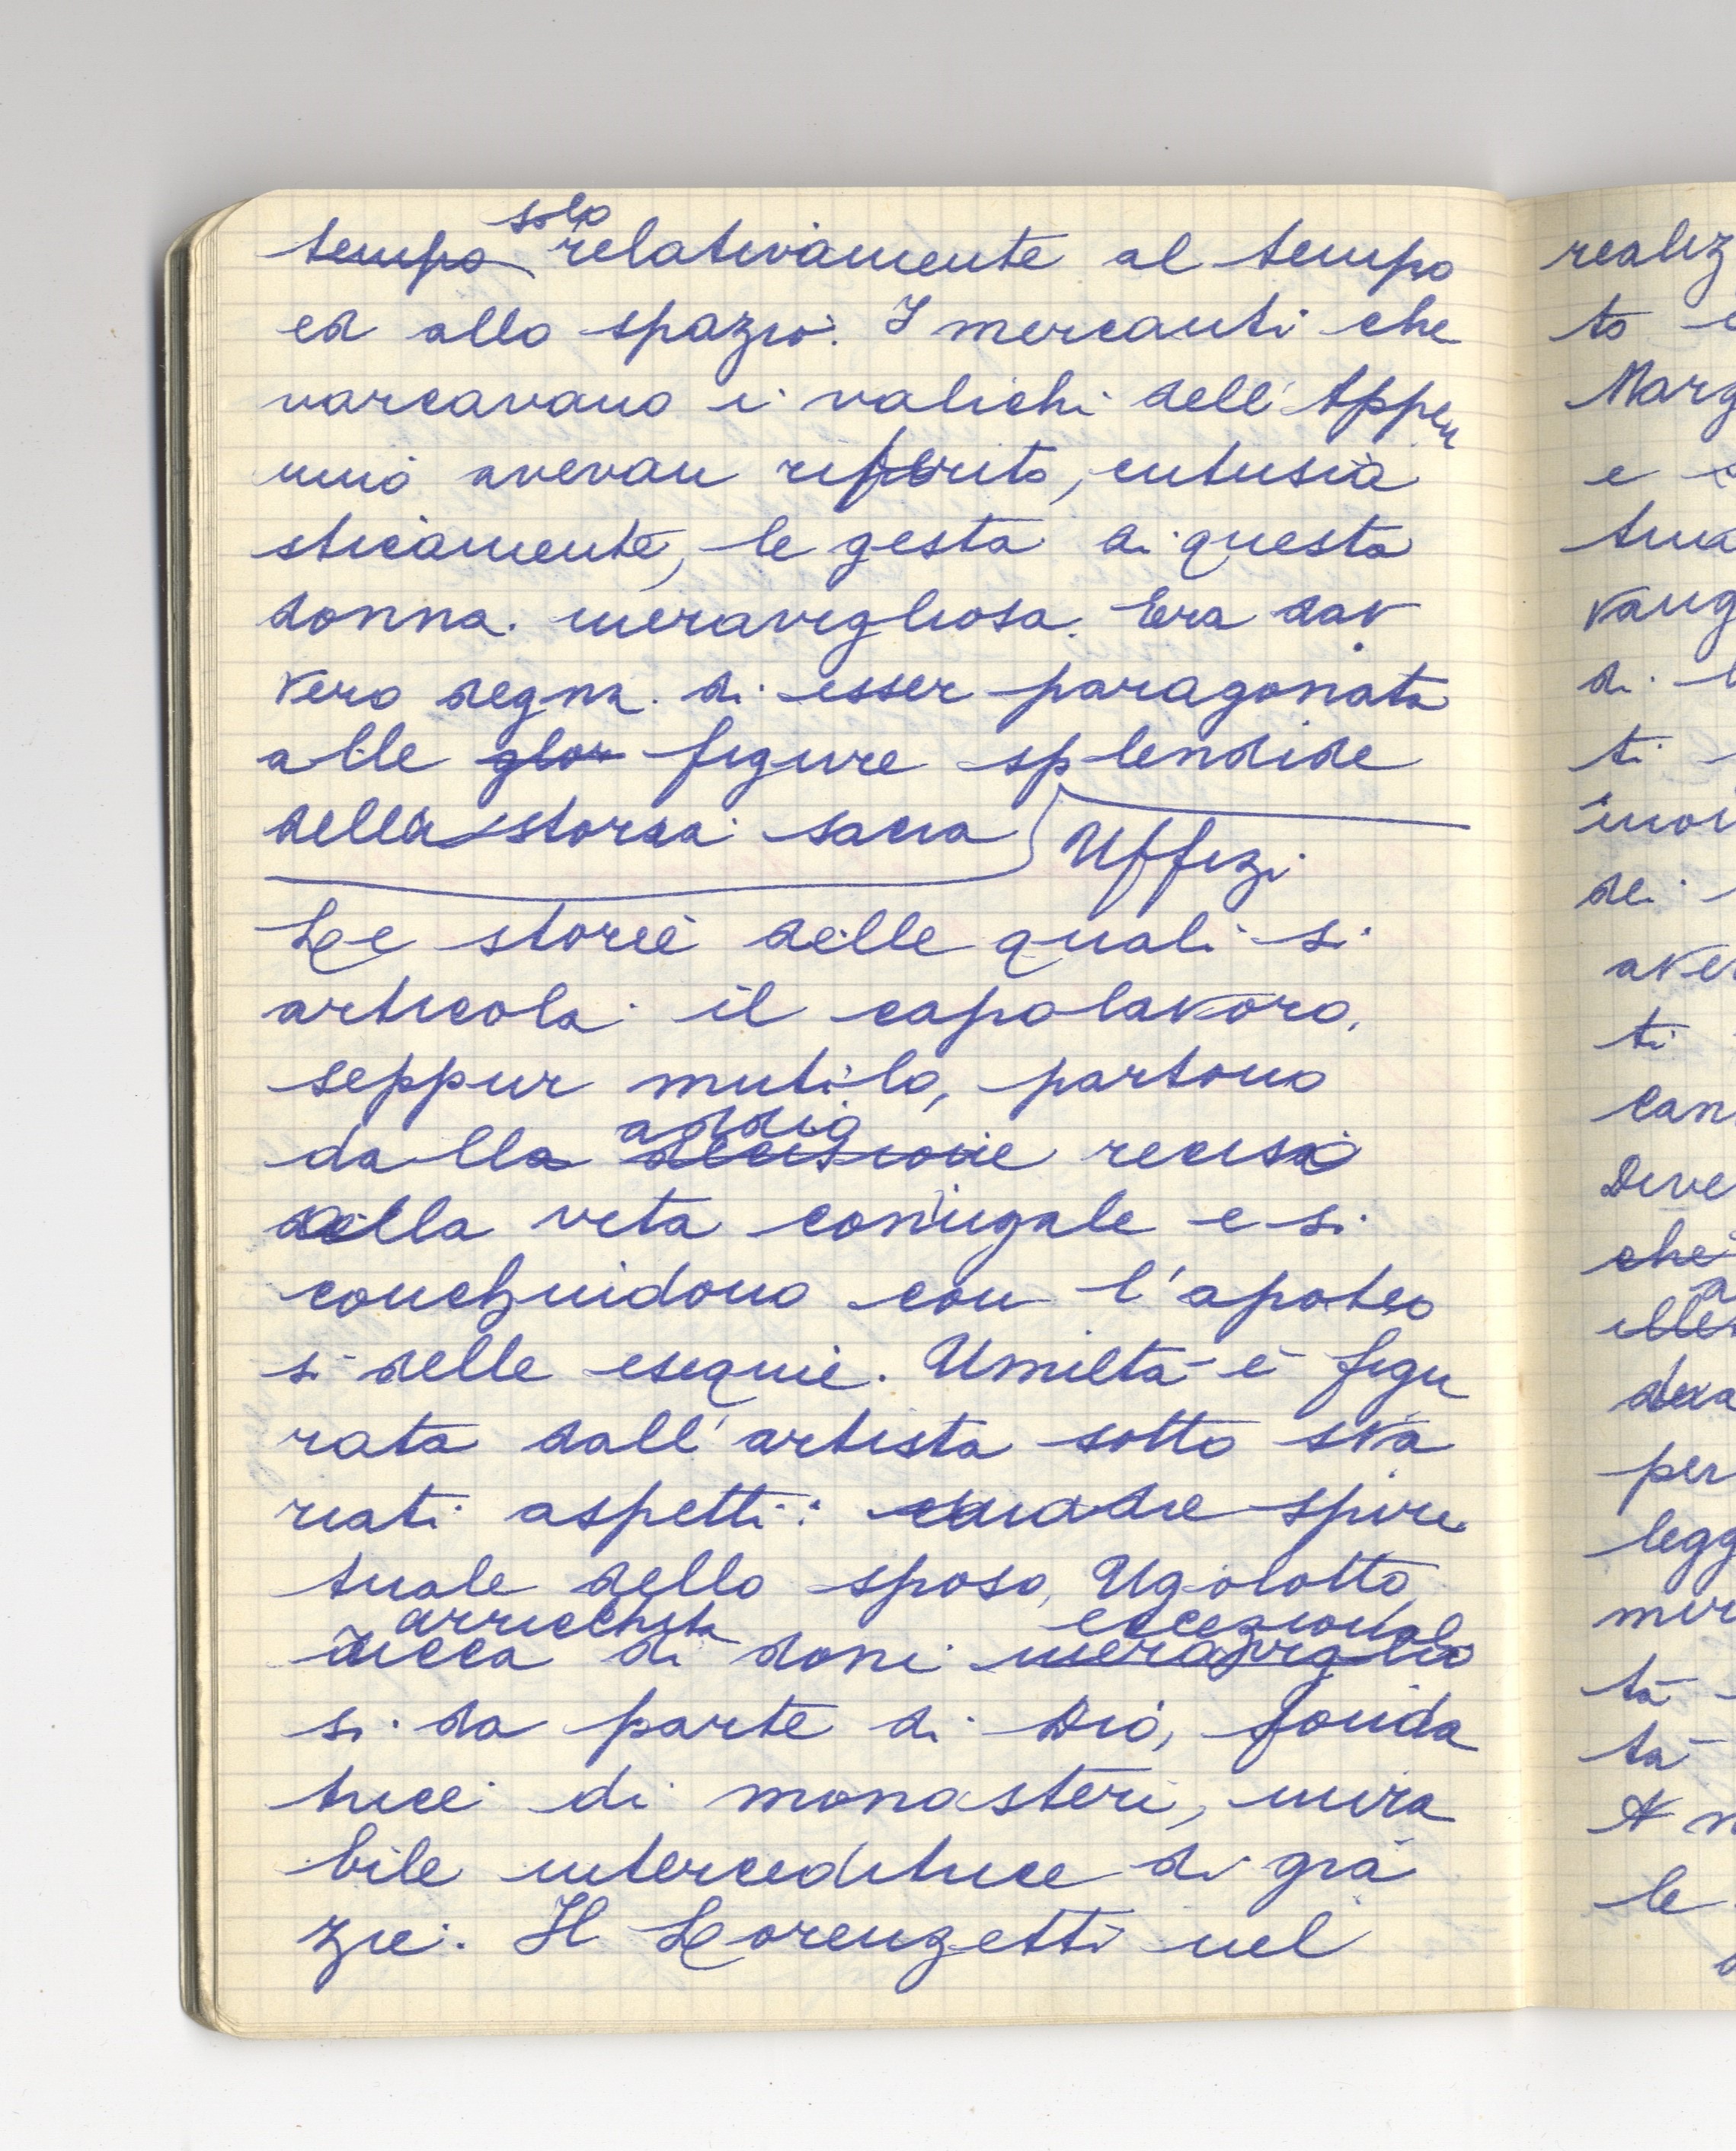 solo
tempo relativamente al tempo
ed allo spazio. I mercanti che
varcavano i valichi dell'Appen
nino avevan riferito, entusia
sticamente, le gesta di questa
donna meravigliosa. Era dav
vero degna di esser paragonata
alle glor figure splendide
della storia sacra
Uffizi
Le storie delle quali si
articola il capolavoro,
seppur mutilo, partono
addio
dalla decisione reciso
alla vita coniugale e si
conchiudono con l'apoteo
si delle esequie. Umiltà è figu
rata dall'artista sotto sva
riati aspetti: madre spiri
tuale dello sposo, Ugolotto,
arricchita eccezionali
ricca di doni meraviglio
si da parte di Dio, fonda
trice di monasteri, mira
bile interceditrice di gra
zie. Il Lorenzetti nel
realiz
to
Marg
e
tua
vang
di
ti
dei
ave
ti
can
Dive
che
per
legg
tà
tà
le